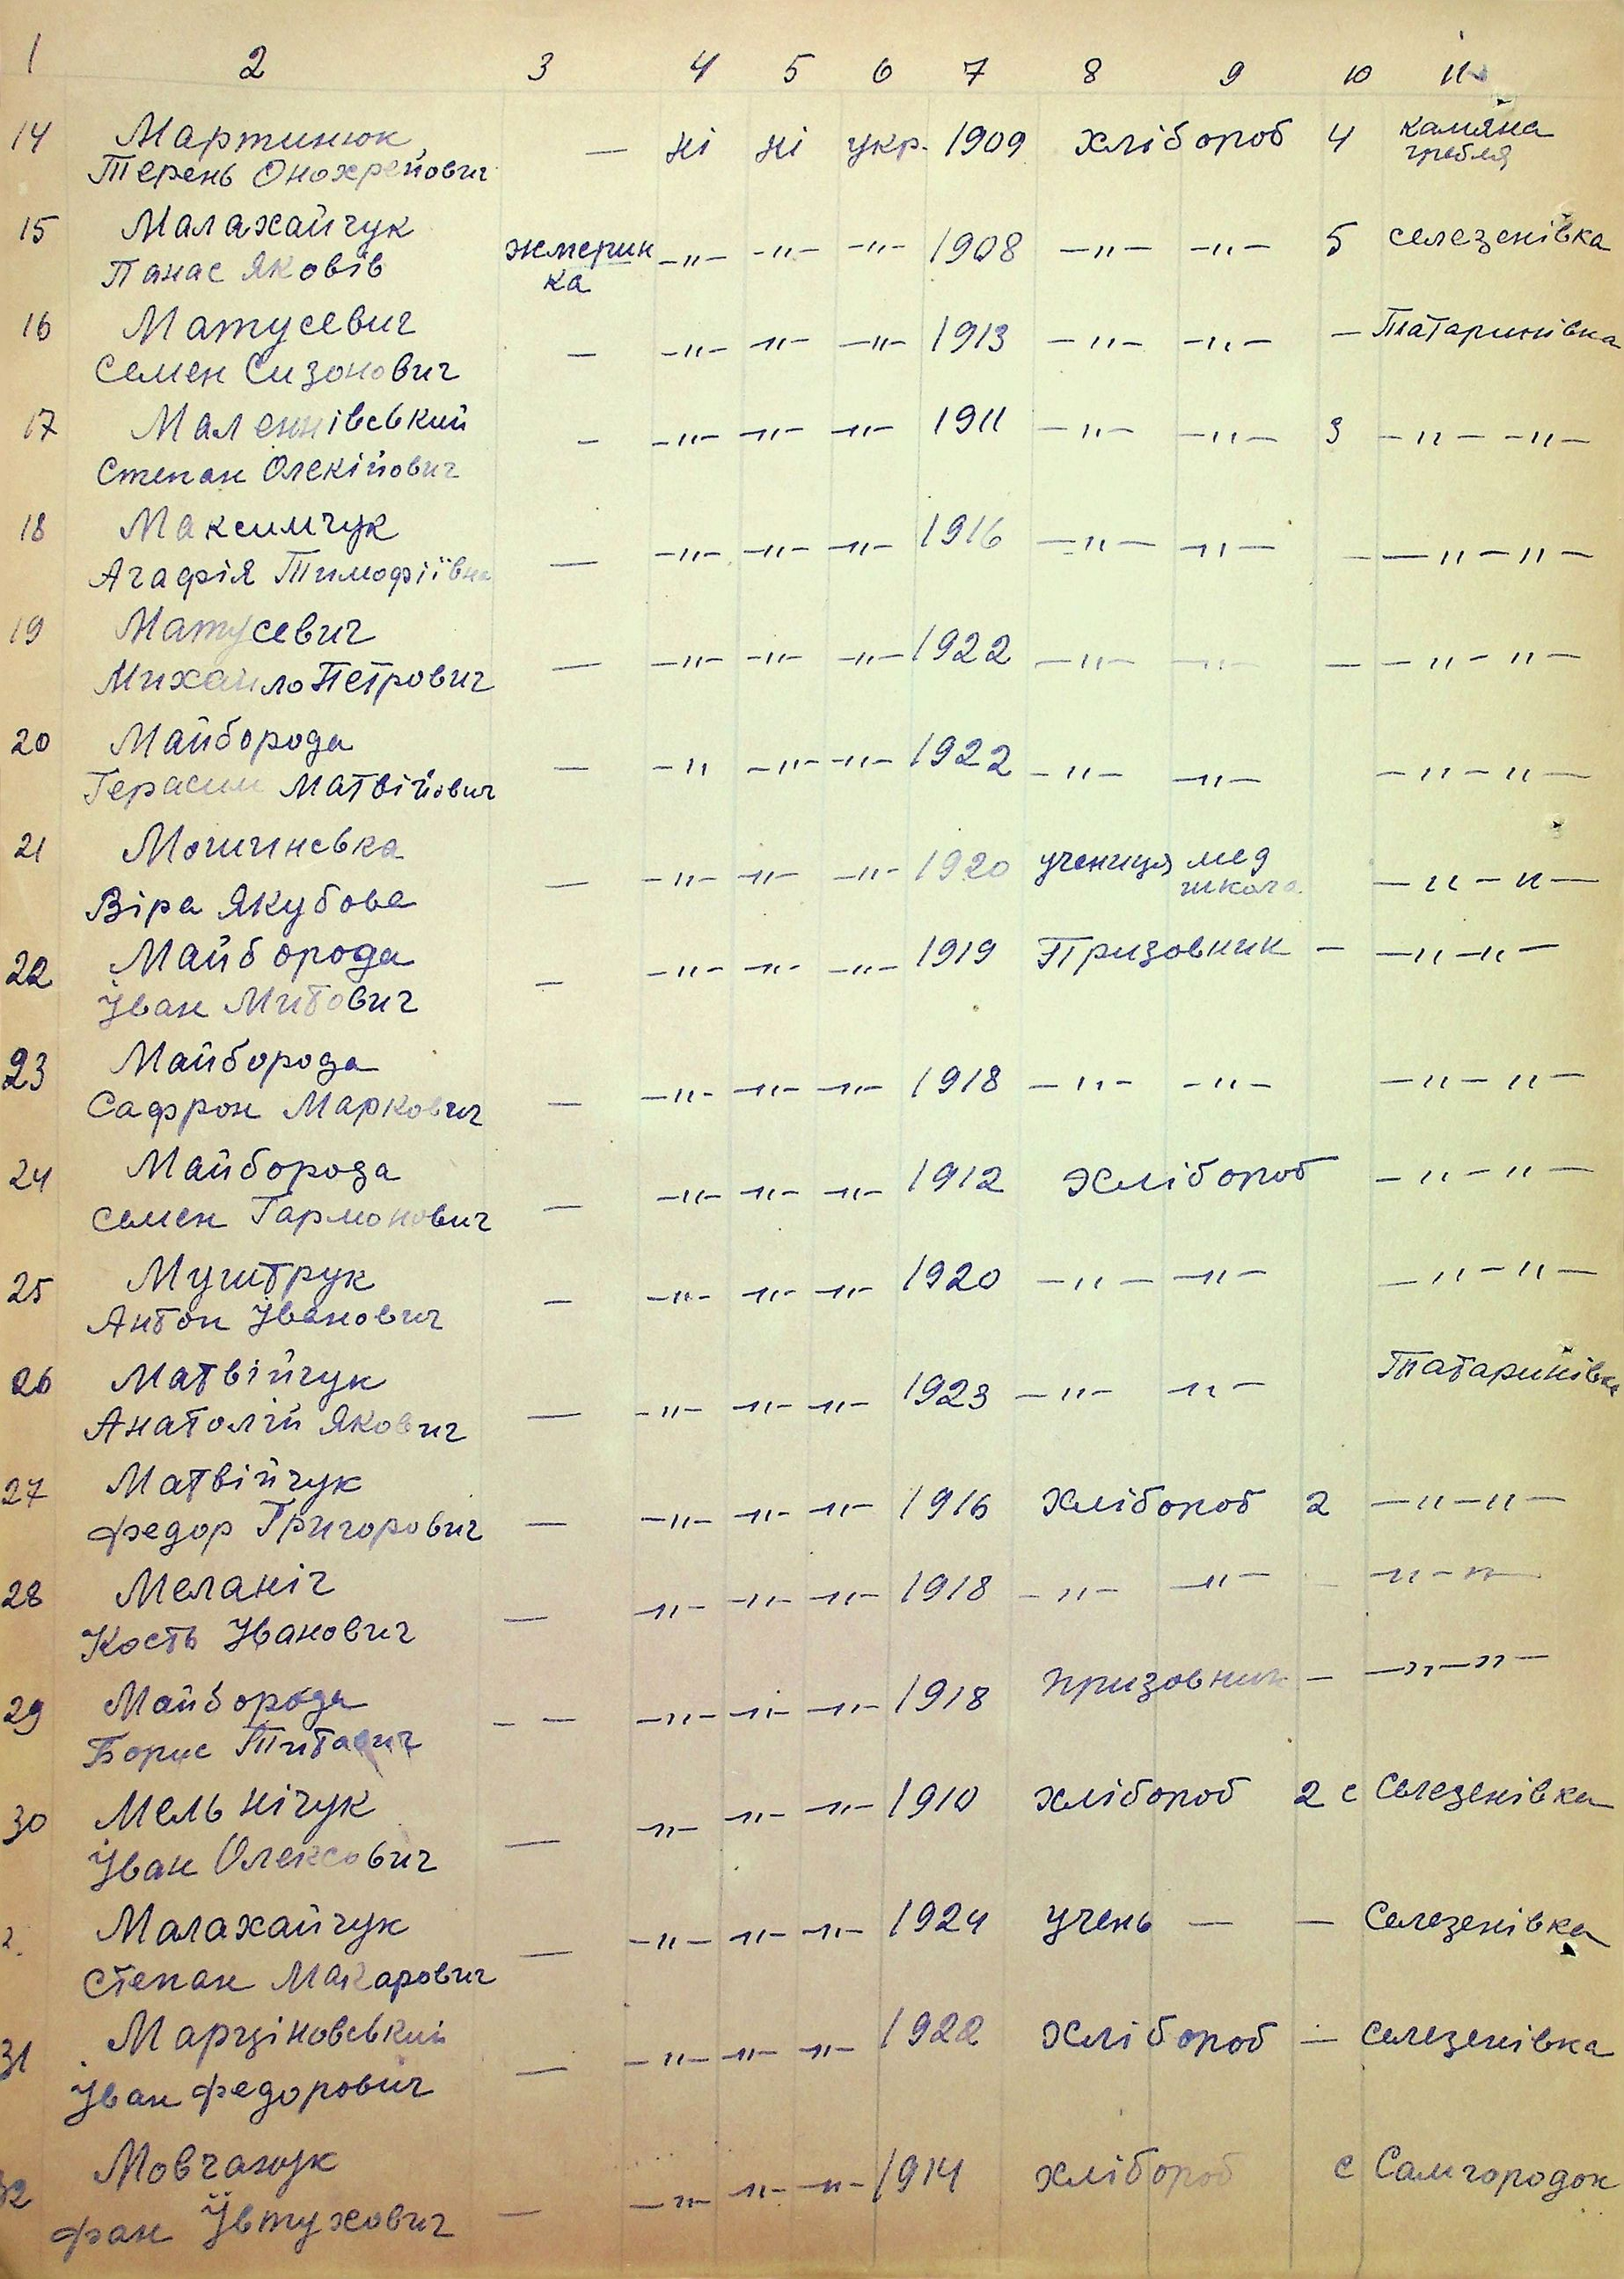 1 2 3 4 5 6 7 8 9 10 11
14 Мартинюк — ні ні укр. 1909 хлібороб 4 камяна
Терень Онохрейович гребля
15 Малахайчук жмерин -"- -"- -"- 1908 -"- -"- 5 селезенівка
Панас Яковів ка
16 Матусевич — -"- -"- -"- 1913 -"- -"- — Татаринівка
Семен Сизонович
17 Маленнівський — -"- -"- -"- 1911 -"- -"- 3 -"- -"-
Степан Олекійович
18 Максимчук — -"- -"- -"- 1916 -"- -"- — -"-"-
Агафія Тимофіївна
19 Матусевич — -"- -"- -"- 1922 -"- -"- — -"-"-
Михайло Петрович
20 Майборода — -" -"- -"- 1922 -"- -"- -"-"-
Герасим Матвійович
21 — -"- -"- -"- 1920 учениця мед -"-"-
Віра Якубова школа
22 Майборода — -"- -"- -"- 1919 Призовник — -"-"-
Іван Митович
23 Майборода — -"- -"- -"- 1918 -"- -"- -"-"-
Сафрон Маркович
24 Майборода — -"- -"- -"- 1912 Хлібороб -"-"-
Семен Гармонович
25 Муштрук — -"- -"- -"- 1920 -"- -"- -"-"-
Антон Іванович
26 Матвійчук — -"- -"- -"- 1923 -"- -"- Татаринівка
Анатолій Якович
27 Матвійчук — -"- -"- -"- 1916 Хлібороб 2 -"-"-
Федор Григорович
28 Меланіч — -"- -"- -"- 1918 -"- -"- -"-"-
Кость Іванович
29 Майборода — — -"- -"- -"- 1918 призовник — -"-"-
Борис Титович
30 Мельнічук — -"- -"- -"- 1910 хлібороб 2 с Селезенівка
Іван Олексович
Малахайчук — -"- -"- -"- 1924 учень — — Селезенівка
Степан Макарович
31 Марціновський — -"- -"- -"- 1922 Хлібороб — селезенівка
Іван Федорович
32 Мовчанук — -"- -"- -"- 1914 хлібороб с Самгородок
Фран Івтухович